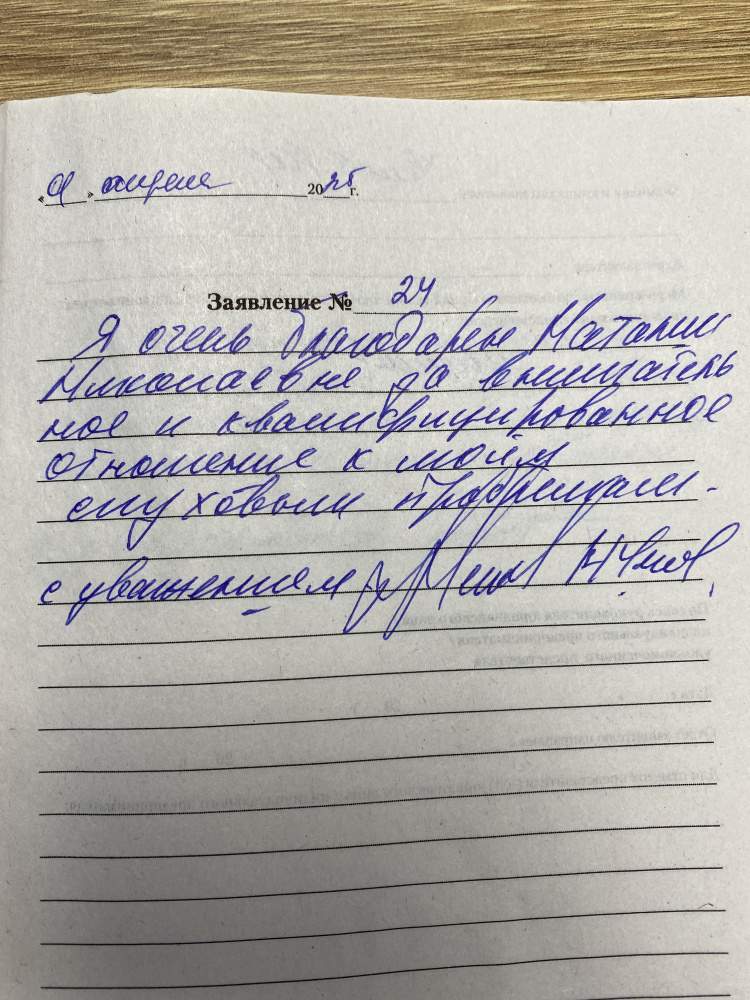 « 9 » апреля 2025 г.
Заявление № 24
Я очень благодарен Наталии
Николаевне за вниматель
ное и квалифицированное
отношение к моим
слуховым проблемам.
с уважением